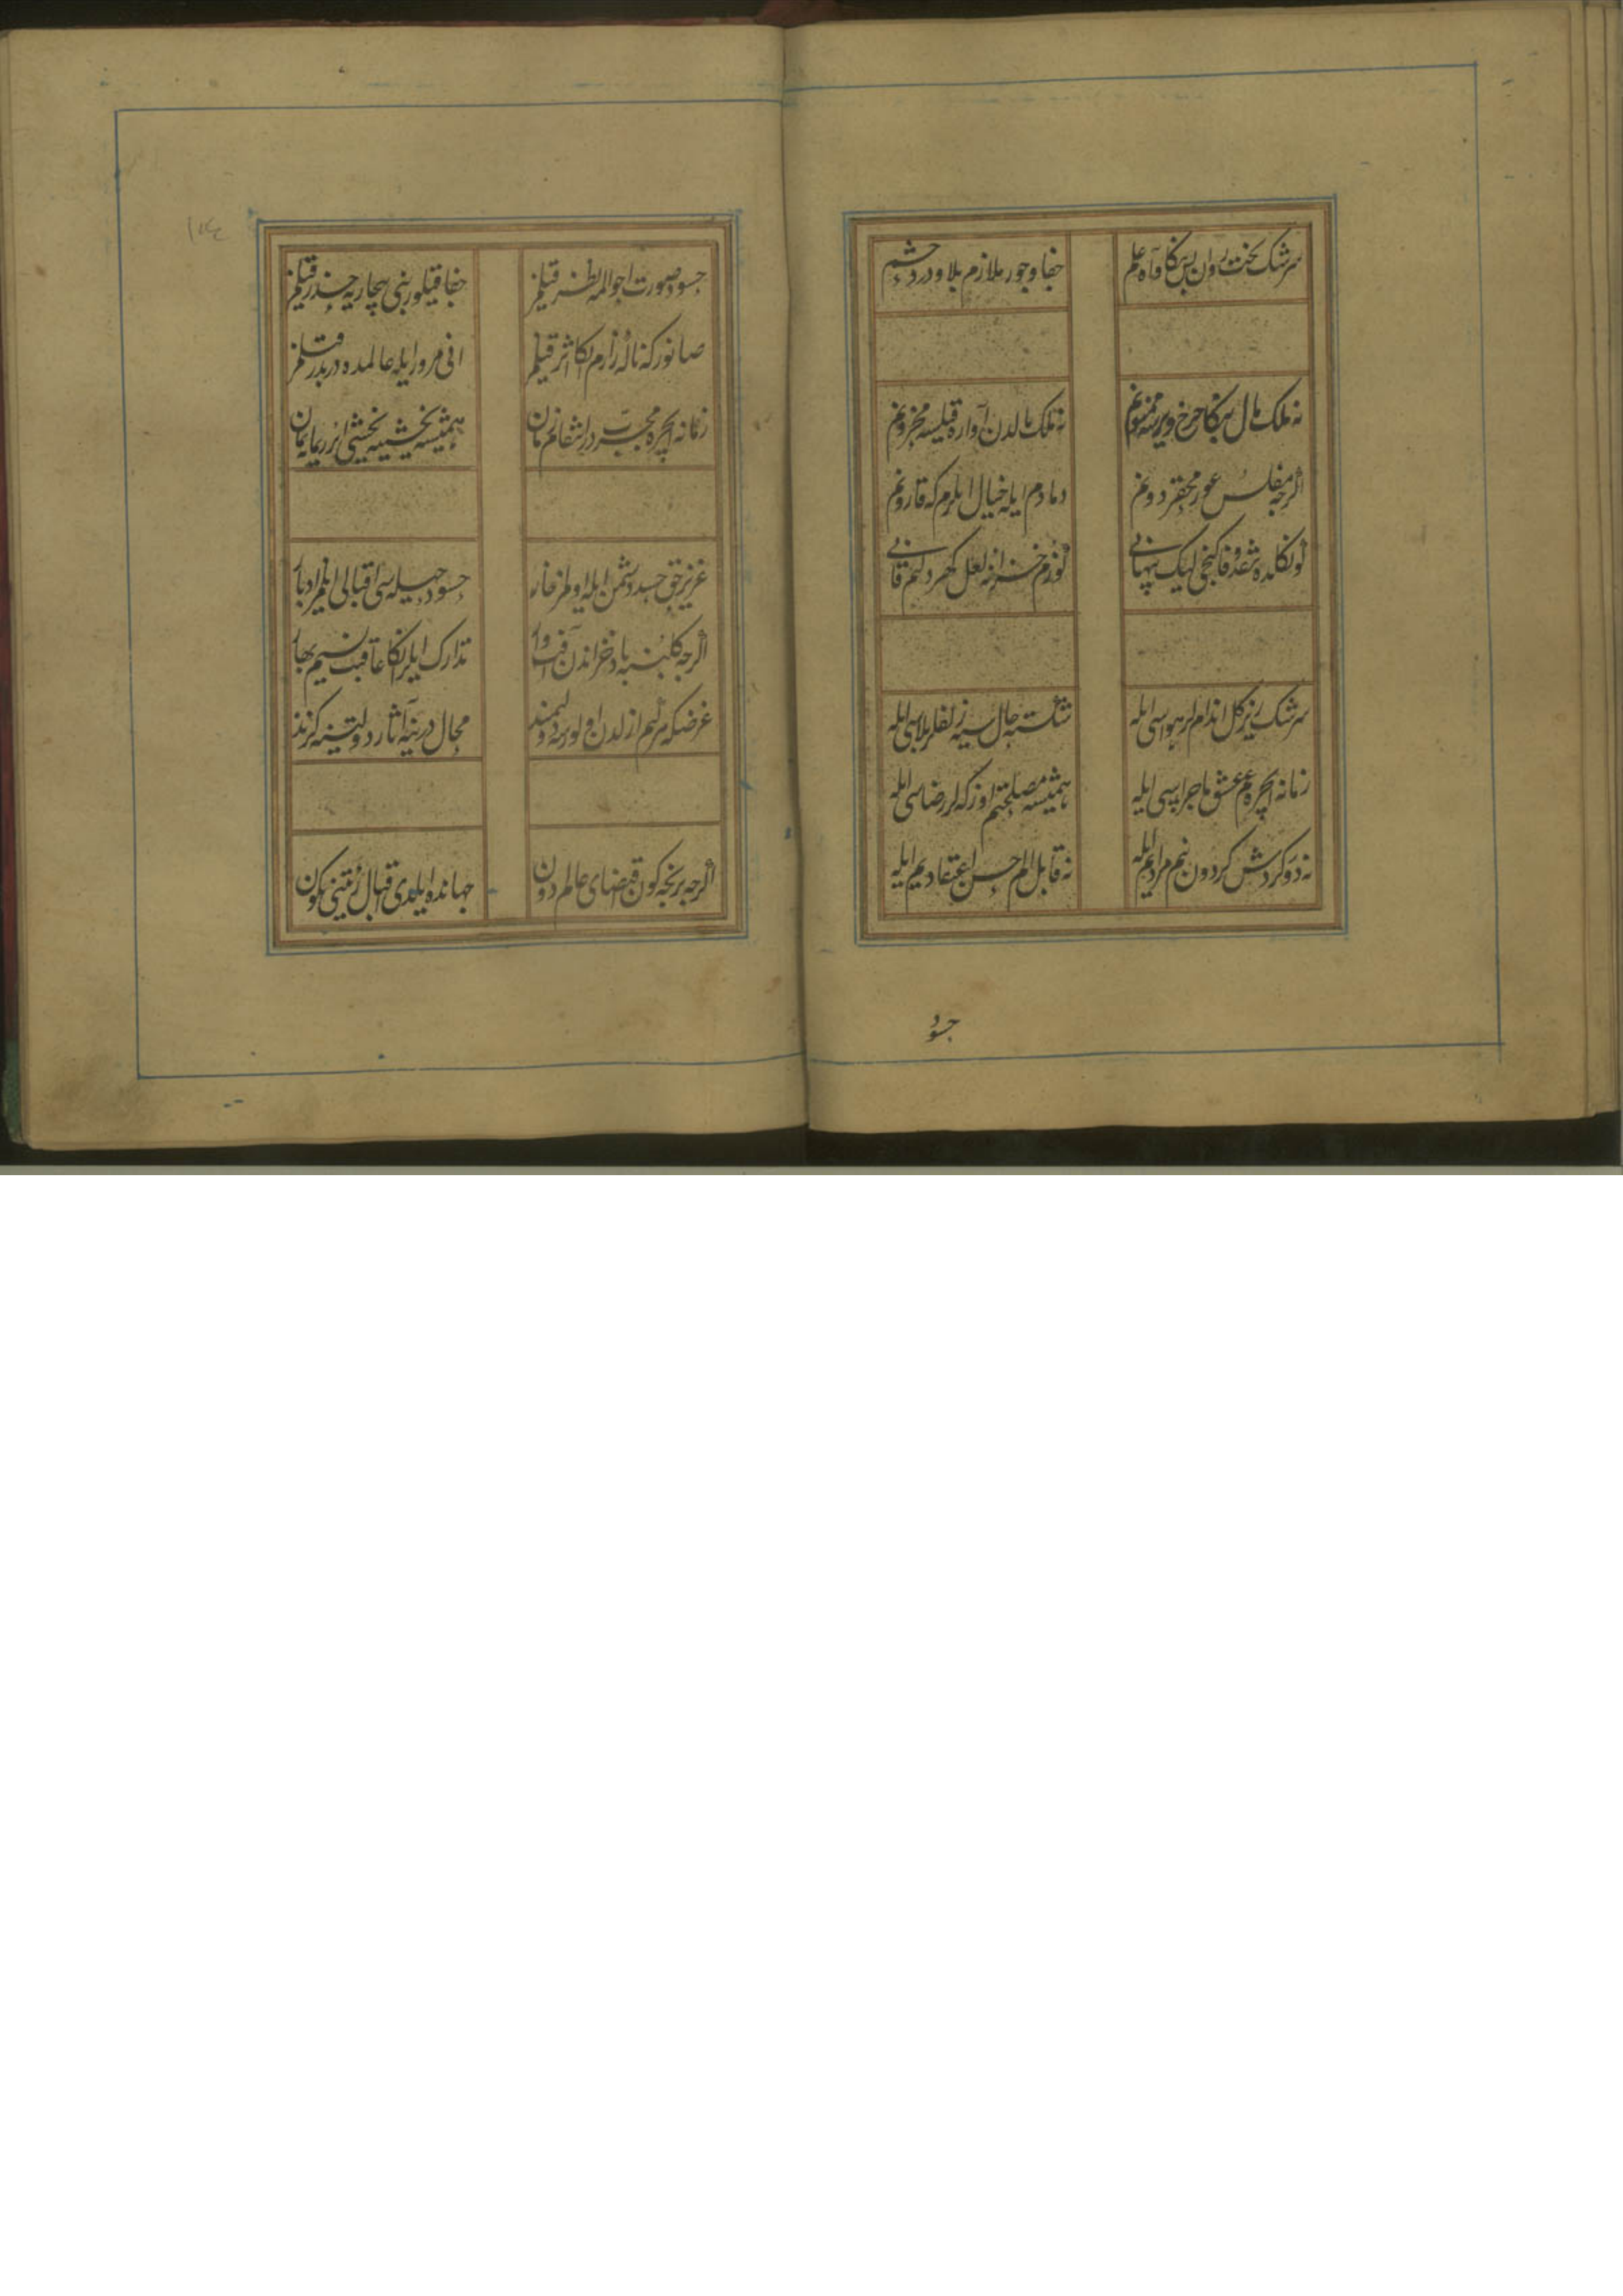 سرشک تخت روان بس بکا و آه علم
جفا و جور ملازم بلا و درد حشم
نه ملک مال بکا چرخ ویرسه ممنونم
نه ملک مالدن آواره قیلسه محزونم
اگرچه مفلس عور محقر دونم
دمادم ایله خیال ایلرم که قارونم
کوکلده نقد وفا کنجی لیک پنهانی
کوزم خزانه لعل کهر دلیم قانی
سرشک ریز کل اندام لر هواسی ایله
شکسته حال سیه زلفلر بلاسی ایله
زمانه ایچره غم عشق ماجراسی ایله
همیشه مصلحتم اوزکه لر رضاسی ایله
نه دور کردش کردون بنم مرادیم ایله
نه قابل الم حسن اعتقادیم ایله
حسود
حسود صورت احوالمه نظر قیلمز
جفا قیلور بنی بیچاریه حذر قیلمز
صانور که ناله زارم بکا اثر قیلمز
انی مرور ایله عالمده دربدر قیلمز
زمانه ایچره مجربدر انتقام زمان
همیشه یخشییه یخشی ایرر یمانه یمان
عزیز حق حسد دشمن ایله اولمز خار
حسود حیله سی اقبالی ایلمز ادبار
اگرچه کلبنه باد خزاندن آفت وار
تدارک ایلر اکا عاقبت نسیم بهار
مجال در ینه آثار دولتینه کزند
اگرچه بر نیجه کون اقتضای عالم دون
جهانده ایلدی اقبال رایتینی نکون
١٧٤